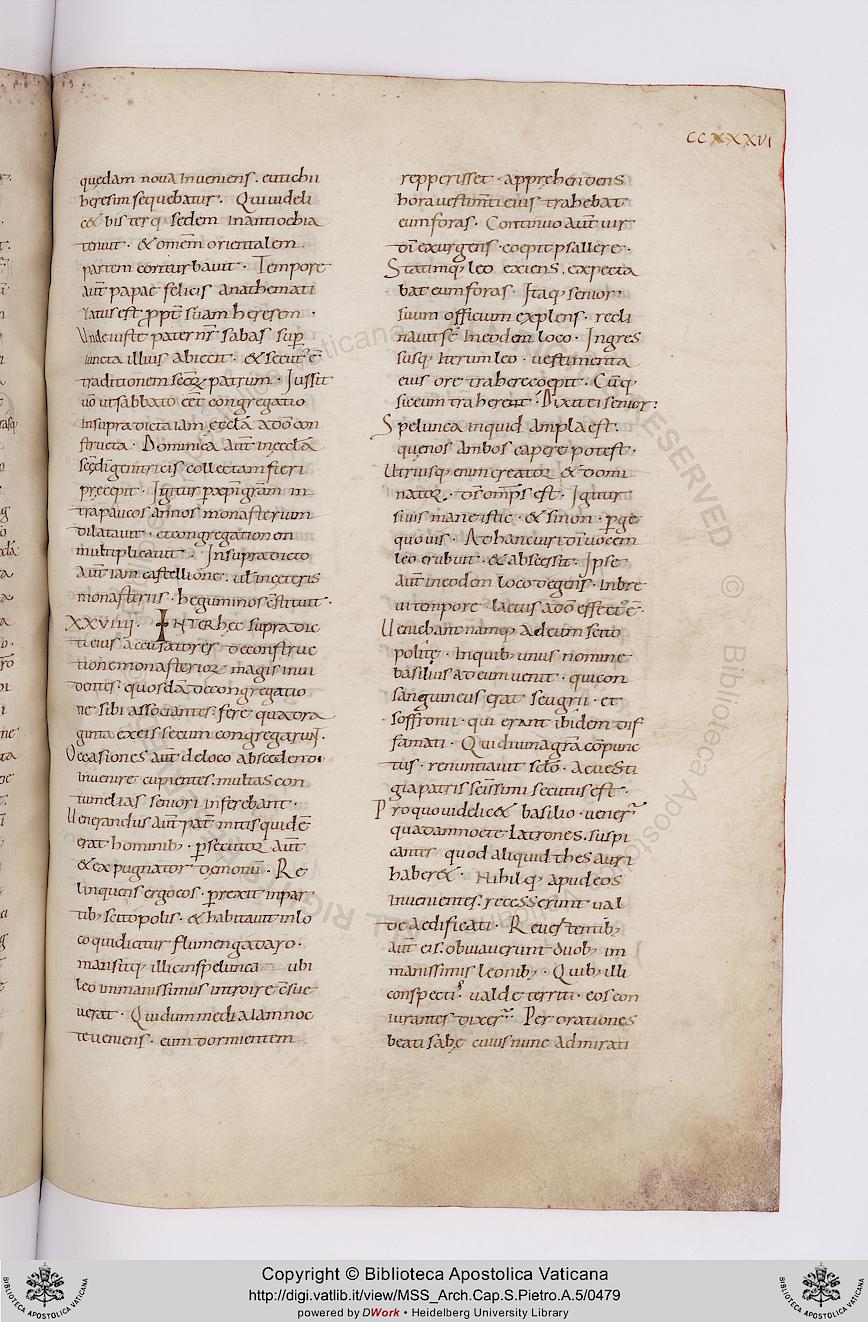 CCXXXVI
quędam noua Inueniens. eutichii
heresim sequebatur. Qui uideli
c& bis terq; sedem In antiochia
tenuit. & omēm orientalem
partem conturbauit. Tempore
aūt papae felicis anathemati
zatus est ꝓpt̄ suam heresem.
Unde iuste pater nr̄ sabas sup̄
iuncta illius abiecit. & secut᾽ ē
traditionem sc̄orꝝ patrum. Jussit
uō ut sabbato cet̄ congregatio
In supra dicta iam eccl̄a a dō con
structa. Dominica aūt in eccl̄a
sc̄ę dī genitricis collectam fieri
pręcepit. Igitur ꝑ xp̄i gr̄am in
tra paucos annos monasterium
dilatauit. et congregationem
multiplicauit. In supra dicto
aūt iam castellione. ul̄ in ceteris
monasteriis. heguminos cōstituit.
XXVIIII. INTER hęc supra dic
ti eius accusatores de constructione
monasteriorꝝ magis inui
dentes. quosdā de congregatio
ne sibi associantes. fere quadra
ginta ex eis secum congregarunt.
Occasiones aūt de loco abscedendi
Inuenire cupientes. multas con
tumelias seniori inferebant.
Uenerandus aūt pat̄ mitis quidē
erat hominib; persecutor aūt
& expugnator demonū. Re
linquens ergo eos. perrexit in par
tib; scitopolis. & habitauit in lo
co qui dicitur flumen gadaro.
mansitq; illic in spelunca ubi
leo immanissimus introire cōsue
uerat. Qui dum media iam noc
te ueniens. eum dormientem
repperisset. apprehendens
hora uestimti eius trahebat
eum foras. Continuo aūt uir
dī exurgens. coepit psallere.
Statimq; leo exiens. expecta
bat eum foras. Itaq; senior
suum officium explens. recli
nauit sē In eodem loco. Ingres
susq; Iterum leo. uestimenta
eius ore trahere coepit. Cūq;
sic eum traherent. Dixit ei senior:
Spelunca inquid ampla est.
quę nos ambos capere potest.
Utriusq; enim creator & domi
nator. dī omīps est. Igitur
si uis mane istic. & si non. perge
quo uis. Ad hanc uiri dī uocem
leo erubuit. & abscessit. Ipse
aūt in eodem loco degens. in bre
ui tempore lactus a dō effect᾽ ē.
Ueniebant namq; ad eum scito
polite. In quib; unus nomine
basilius ad eum uenit. qui con
sanguineus erat seugrii. et
soffronii. qui erant ibidem dif
famati. Qui diuina grā cōpunc
tus. renuntiauit sc̄lo. ac uesti
gia patris scīssimi secutus est.
Pro quo uidelic& basilio. uener̄
quadam nocte latrones. suspi
cantes quod aliquid thesauri
haber&. Nihilq; apud eos
inuenientes. recesserunt ual
de aedificati. Reuertentib;
aūt eis. obuiauerunt duob; im
manissimis leonib;. Quib; illi
conspectis. ualde territi. eos con
iurantes dixer̄. Per orationes
beati sabę cuius nunc admirati
Copyright © Biblioteca Apostolica Vaticana
http://digi.vatlib.it/view/MSS_Arch.Cap.S.Pietro.A.5/0479
powered by DWork • Heidelberg University Library